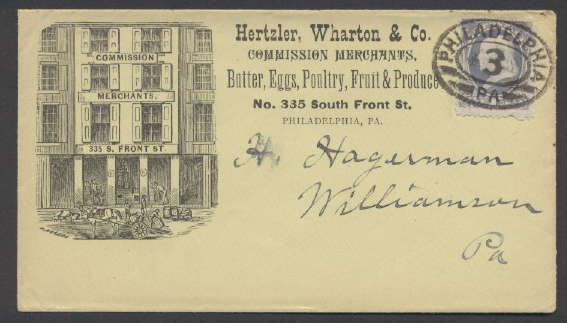 COMMISSION
MERCHANTS,
335 S. FRONT ST.
Hertzler, Wharton & Co.
COMMISSION MERCHANTS,
Butter, Eggs, Poultry, Fruit & Produce
No. 335 South Front St.
PHILADELPHIA, PA.
PHILADELPHIA
3
PA.
H. Hagerman
Williamson
Pa